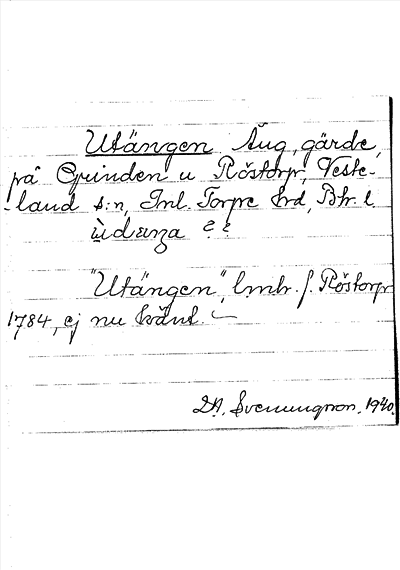 Utängen Äng, gärde,
på Grinden u Röstorp, Veste-
-land s:n, Inl. Torpe hrd, Bhl.
ùdæŋa ??
"Utängen", lmhr. f. Röstorp
1784, ej nu känt.
D.A. Svenungson, 1940.